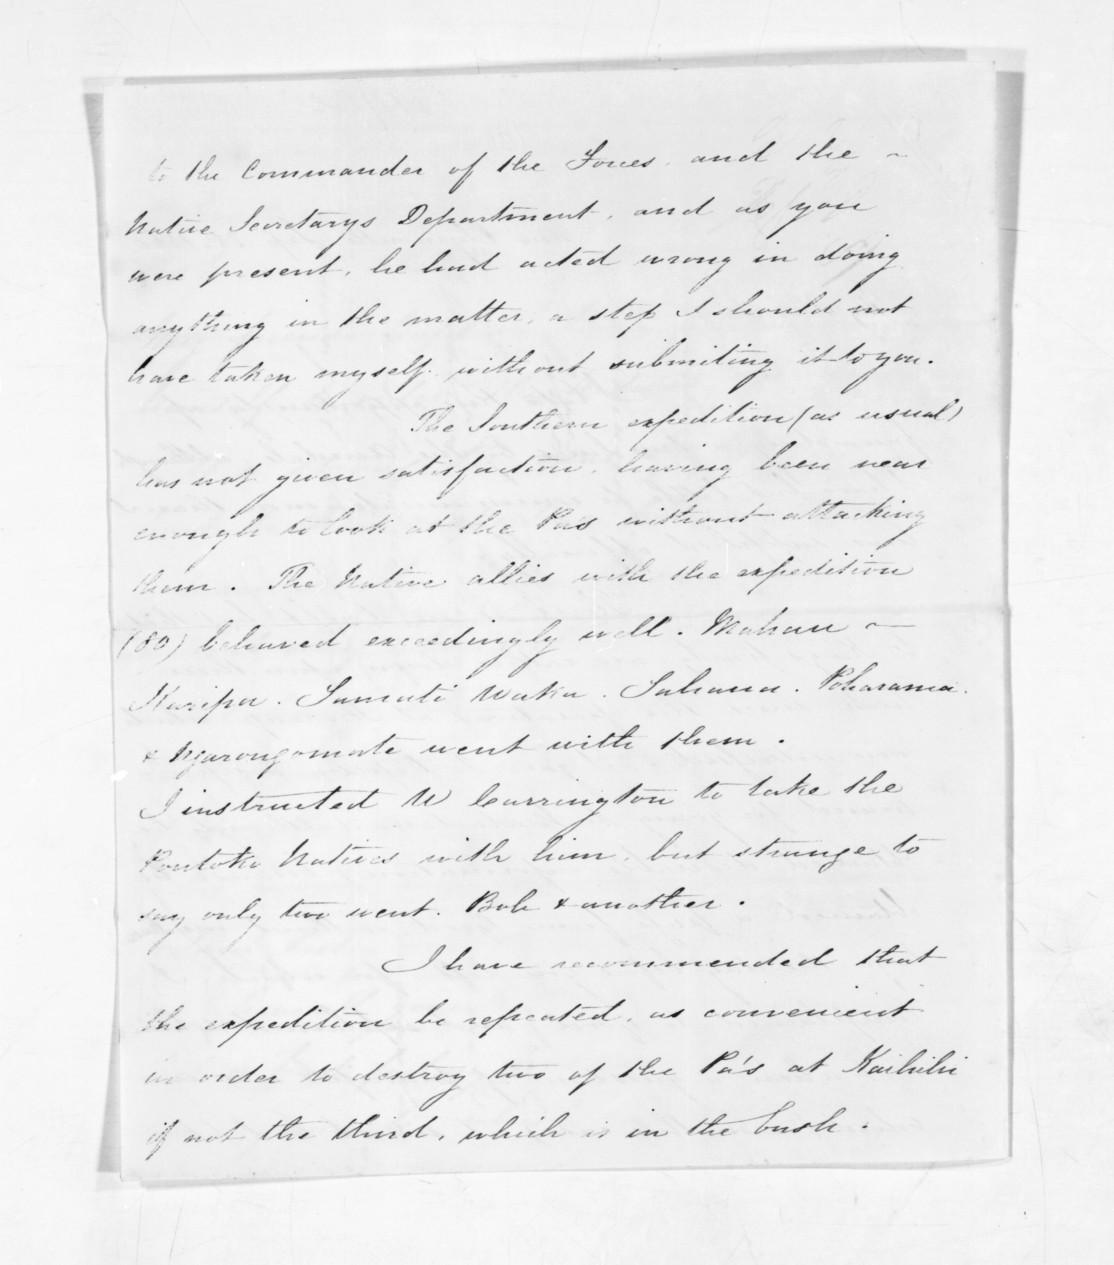 to the Commander of the Forces, and the ~
Native Secretarys Department, and as you
were present, he had acted wrong in doing
anything in the matter, a step I should not
have taken myself without submiting it to you.
The Southern expedition (as usual)
has not given satisfaction, having been near
enough to look at the Pa's without attacking
them. The Native allies with the expedition
(80) behaved exceedingly well. Mahau ~
Karipa. Tamati Waka. Tahana. Poharama.
& Ngarongomate went with them.
I instructed W Carrington to take the
Poutoko Natives with him, but strange to
say only two went. Bob & another.
I have recommended that
the expedition be repeated, as convenient
in order to destroy two of the Pa's at Kaihihi
if not the third, which is in the bush.